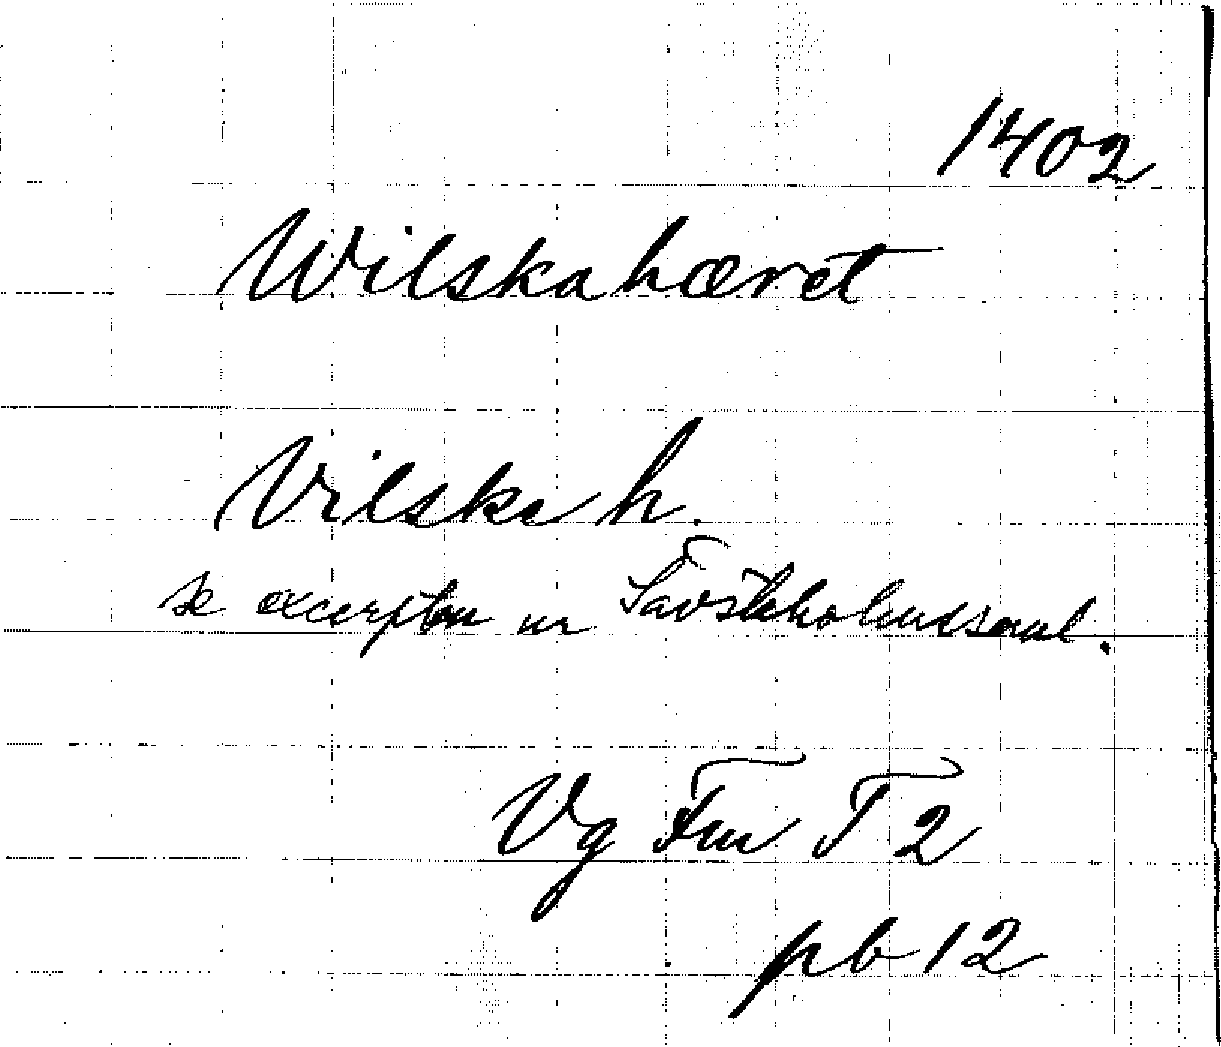 1402
Wilskahæret
Vilske h.
se excerpten ur Sävstaholmssaml.
Vg Fm T 2
pb 12